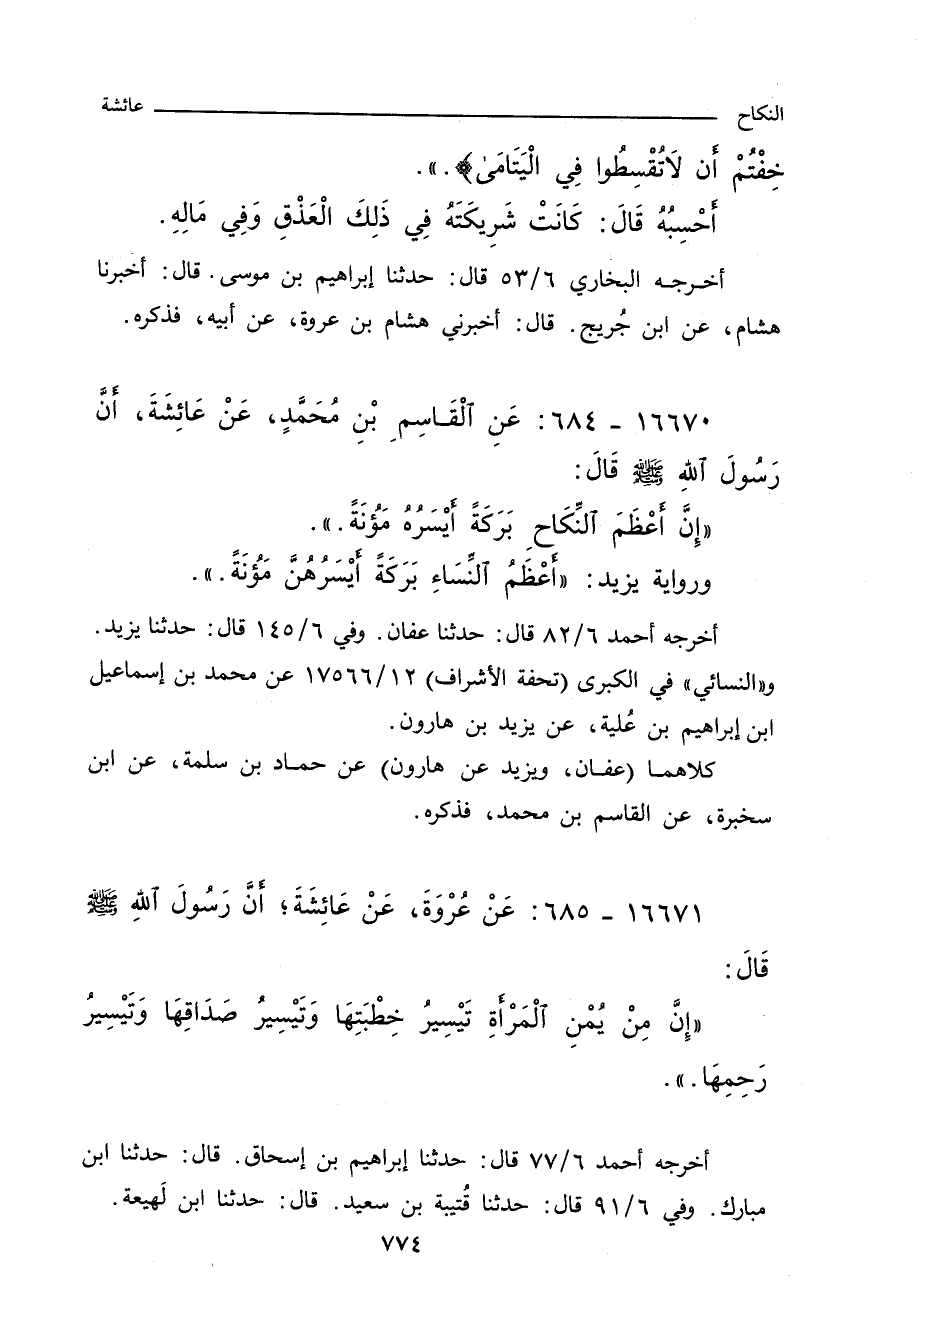 النكاح عائشة
خِفْتُمْ أَن لَاتُقْسِطُوا فِي الْيَتَامَىٰ﴾.».
أَحْسِبُهُ قَالَ: كَانَتْ شَرِيكَتَهُ فِي ذَلِكَ الْعَذْقِ وَفِي مَالِهِ.
أخرجه البخاري ٥٣/٦ قال: حدثنا إبراهيم بن موسى. قال: أخبرنا
هشام، عن ابن جُريج. قال: أخبرني هشام بن عروة، عن أبيه، فذكره.
١٦٦٧٠ - ٦٨٤: عَنِ ٱلْقَاسِمِ بْنِ مُحَمَّدٍ، عَنْ عَائِشَةَ، أَنَّ
رَسُولَ ٱللهِ ﷺ قَالَ:
«إِنَّ أَعْظَمَ ٱلنِّكَاحِ بَرَكَةً أَيْسَرُهُ مَؤُنَةً.».
ورواية يزيد: «أَعْظَمُ ٱلنِّسَاءِ بَرَكَةً أَيْسَرُهُنَّ مَؤُنَةً.».
أخرجه أحمد ٨٢/٦ قال: حدثنا عفان. وفي ١٤٥/٦ قال: حدثنا يزيد.
و«النسائي» في الكبرى (تحفة الأشراف) ١٧٥٦٦/١٢ عن محمد بن إسماعيل
ابن إبراهيم بن عُلية، عن يزيد بن هارون.
كلاهما (عفان، ويزيد عن هارون) عن حماد بن سلمة، عن ابن
سخبرة، عن القاسم بن محمد، فذكره.
١٦٦٧١ - ٦٨٥: عَنْ عُرْوَةَ، عَنْ عَائِشَةَ؛ أَنَّ رَسُولَ ٱللهِ ﷺ
قَالَ:
«إِنَّ مِنْ يُمْنِ ٱلْمَرْأَةِ تَيْسِيرُ خِطْبَتِهَا وَتَيْسِيرُ صَدَاقِهَا وَتَيْسِيرُ
رَحِمِهَا.».
أخرجه أحمد ٧٧/٦ قال: حدثنا إبراهيم بن إسحاق. قال: حدثنا ابن
مبارك. وفي ٩١/٦ قال: حدثنا قُتيبة بن سعيد. قال: حدثنا ابن لَهيعة.
٧٧٤